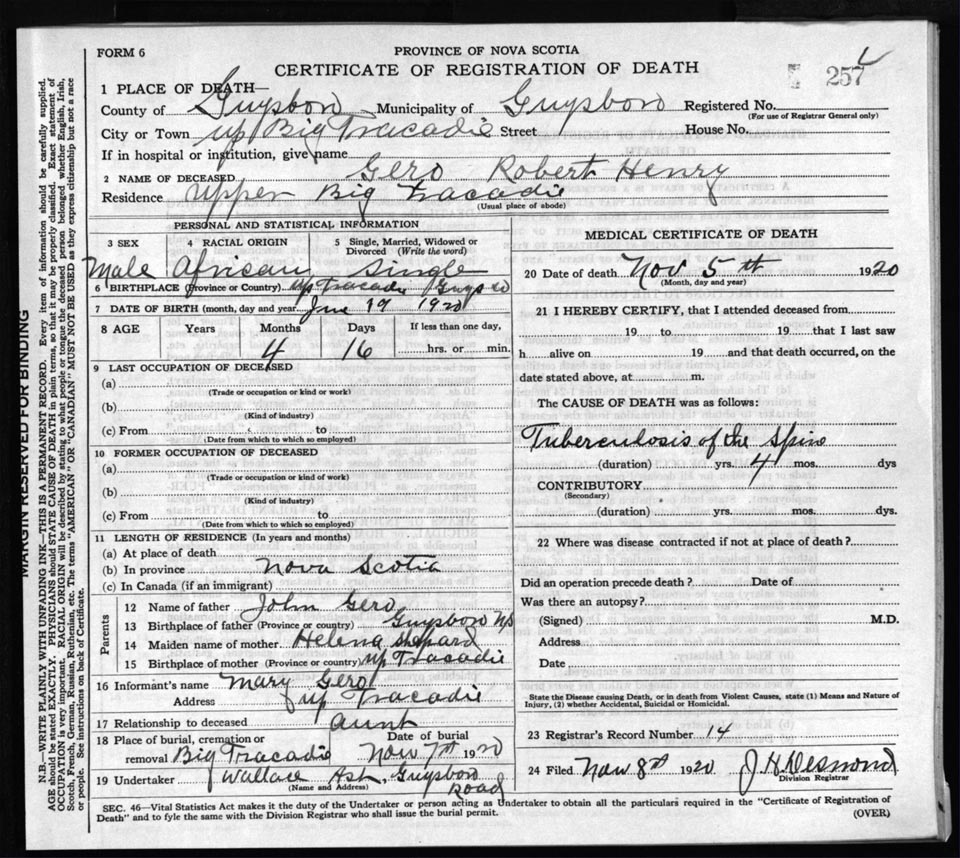 FORM 6
PROVINCE OF NOVA SCOTIA
CERTIFICATE OF REGISTRATION OF DEATH
257
1 PLACE OF DEATH—
County of Guysboro Municipality of Guysboro Registered No.
(For use of Registrar General only)
City or Town up Big Tracadie Street House No.
If in hospital or institution, give name
2 NAME OF DECEASED Gero Robert Henry
Residence Upper Big Tracadie
(Usual place of abode)
PERSONAL AND STATISTICAL INFORMATION
3 SEX 4 RACIAL ORIGIN 5 Single, Married, Widowed or Divorced (Write the word)
Male African Single
6 BIRTHPLACE (Province or Country) up Tracadie Guys co
7 DATE OF BIRTH (month, day and year) June 19 1920
8 AGE Years Months Days If less than one day,
4 16 hrs. or min.
9 LAST OCCUPATION OF DECEASED
(a)
(Trade or occupation or kind or work)
(b)
(Kind of industry)
(c) From to
(Date from which to which so employed)
10 FORMER OCCUPATION OF DECEASED
(a)
(Trade or occupation or kind of work)
(b)
(Kind of industry)
(c) From to
(Date from which to which so employed)
11 LENGTH OF RESIDENCE (In years and months)
(a) At place of death
(b) In province Nova Scotia
(c) In Canada (if an immigrant)
Parents
12 Name of father John Gero
13 Birthplace of father (Province or country) Guysboro NS
14 Maiden name of mother Helena Shepard
15 Birthplace of mother (Province or country) up Tracadie
16 Informant's name Mary Gero
Address up Tracadie
17 Relationship to deceased aunt
18 Place of burial, cremation or removal Big Tracadie Date of burial Nov 7th 1920
19 Undertaker Wallace Ash, Guysboro Road
(Name and Address)
MEDICAL CERTIFICATE OF DEATH
20 Date of death Nov 5th 1920
(Month, day and year)
21 I HEREBY CERTIFY, that I attended deceased from
19 to 19 that I last saw
h alive on 19 and that death occurred, on the
date stated above, at m.
The CAUSE OF DEATH was as follows:
Tuberculosis of the Spine
(duration) yrs. 4 mos. dys
CONTRIBUTORY
(Secondary)
(duration) yrs. mos. dys.
22 Where was disease contracted if not at place of death?
Did an operation precede death? Date of
Was there an autopsy?
(Signed) M.D.
Address
Date
State the Disease causing Death, or in death from Violent Causes, state (1) Means and Nature of
Injury, (2) whether Accidental, Suicidal or Homicidal.
23 Registrar's Record Number 14
24 Filed Nov 8th 1920 J H Desmond
Division Registrar
SEC. 46—Vital Statistics Act makes it the duty of the Undertaker or person acting as Undertaker to obtain all the particulars required in the "Certificate of Registration of
Death" and to fyle the same with the Division Registrar who shall issue the burial permit.
(OVER)
MARGIN RESERVED FOR BINDING
N.B.—WRITE PLAINLY WITH UNFADING INK—THIS IS A PERMANENT RECORD. Every item of information should be carefully supplied.
AGE should be stated EXACTLY. PHYSICIANS should STATE CAUSE OF DEATH in plain terms, so that it may be properly classified. Exact statement of
OCCUPATION is very important. RACIAL ORIGIN will be described by stating to what people or tongue the deceased person belonged whether English, Irish,
Scotch, French, German, Russian, Ruthenian, etc. The terms "AMERICAN" OR "CANADIAN" MUST NOT BE USED as they express citizenship but not a race
or people. See instructions on back of Certificate.